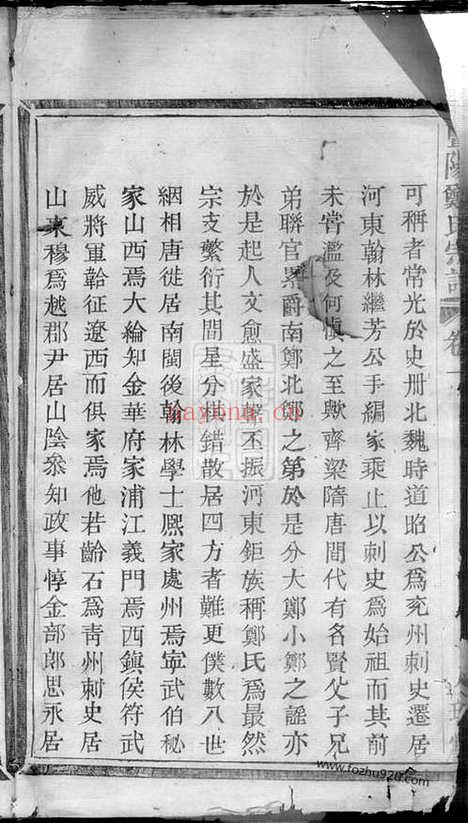 陽鄭氏宗譜 卷一
可稱者常光於史册北魏時道昭公爲兖州刺史遷居
河東翰林繼芳公手編家乘止以刺史爲始祖而其前
未嘗濫及何愼之至歟齊梁隋唐間代有名賢父子兄
弟聯官累爵南鄭北鄭之第於是分大鄭小鄭之謡亦
於是起人文愈盛家聲丕振河東鉅族稱鄭氏爲最然
宗支繁衍其間星分棋錯散居四方者難更僕數八世
絪相唐徙居南閩後翰林學士熈家處州焉寜武伯秘
家山西焉大綸知金華府家浦江義門焉西鎮侯符武
威將軍韐征遼西而俱家焉他若齡石爲靑州刺史居
山東穆爲越郡尹居山陰叅知政事惇金部郎思永居
hayena.cc
www.fozhu920.com